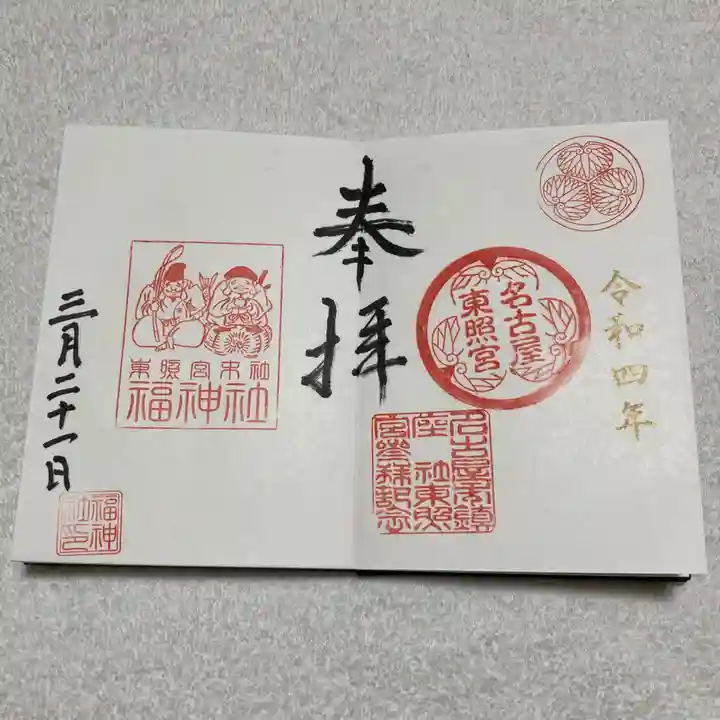 令和四年
名古屋
東照宮
名古屋市鎮
座 社東照
宮参拝記念
奉拝
東照宮末社
福神社
三月二十一日
福神
社印